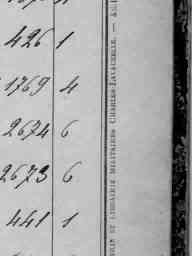 426 1
1769 4
2674 6
2673 6
441 1
ET LIBRAIRIE MILITAIRES CHARLES-LAVAUZELLE. —